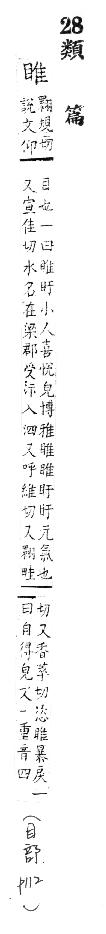 28
類篇
睢
翾規切
說文仰
目也一曰睢盱小人喜悅皃博雅睢睢盱盱元氣也
又宣佳切水名在梁郡受汴入泗又呼維切又翾畦
切又香萃切恣睢暴戾一
曰自得皃文一重音四
(目部 p112)